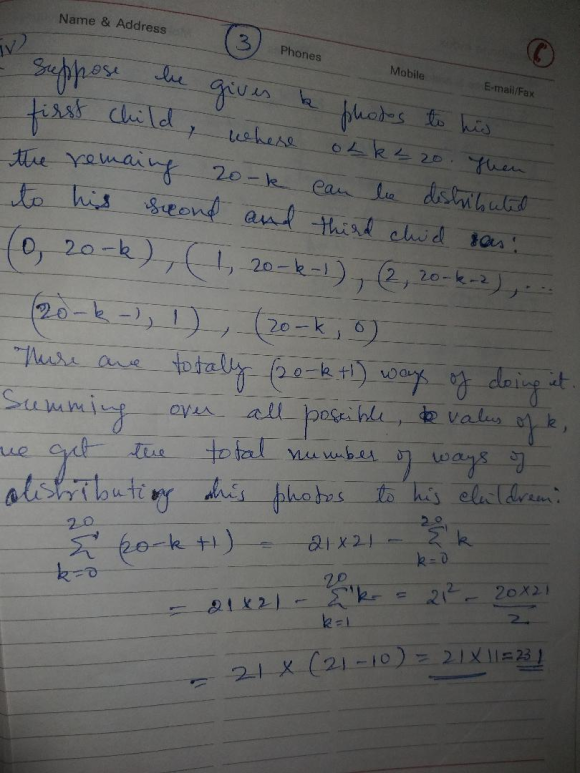 Name & Address
3
Phones
Mobile
E-mail/Fax
iv)
Suppose he gives k photos to his
first child, where 0 ≤ k ≤ 20. Then
the remaing 20-k can be distributed
to his second and third child as:
(0, 20-k), (1, 20-k-1), (2, 20-k-2), ...
(20-k-1, 1), (20-k, 0)
There are totally (20-k+1) ways of doing it.
Summing over all possible, values of k,
we get the total number of ways of
distributing his photos to his children:
20
Σ (20-k+1) = 21×21 - Σ k
k=0
20
k=0
= 21×21 - Σ k = 21² - 20×21/2
20
k=1
= 21 × (21-10) = 21×11 = 231